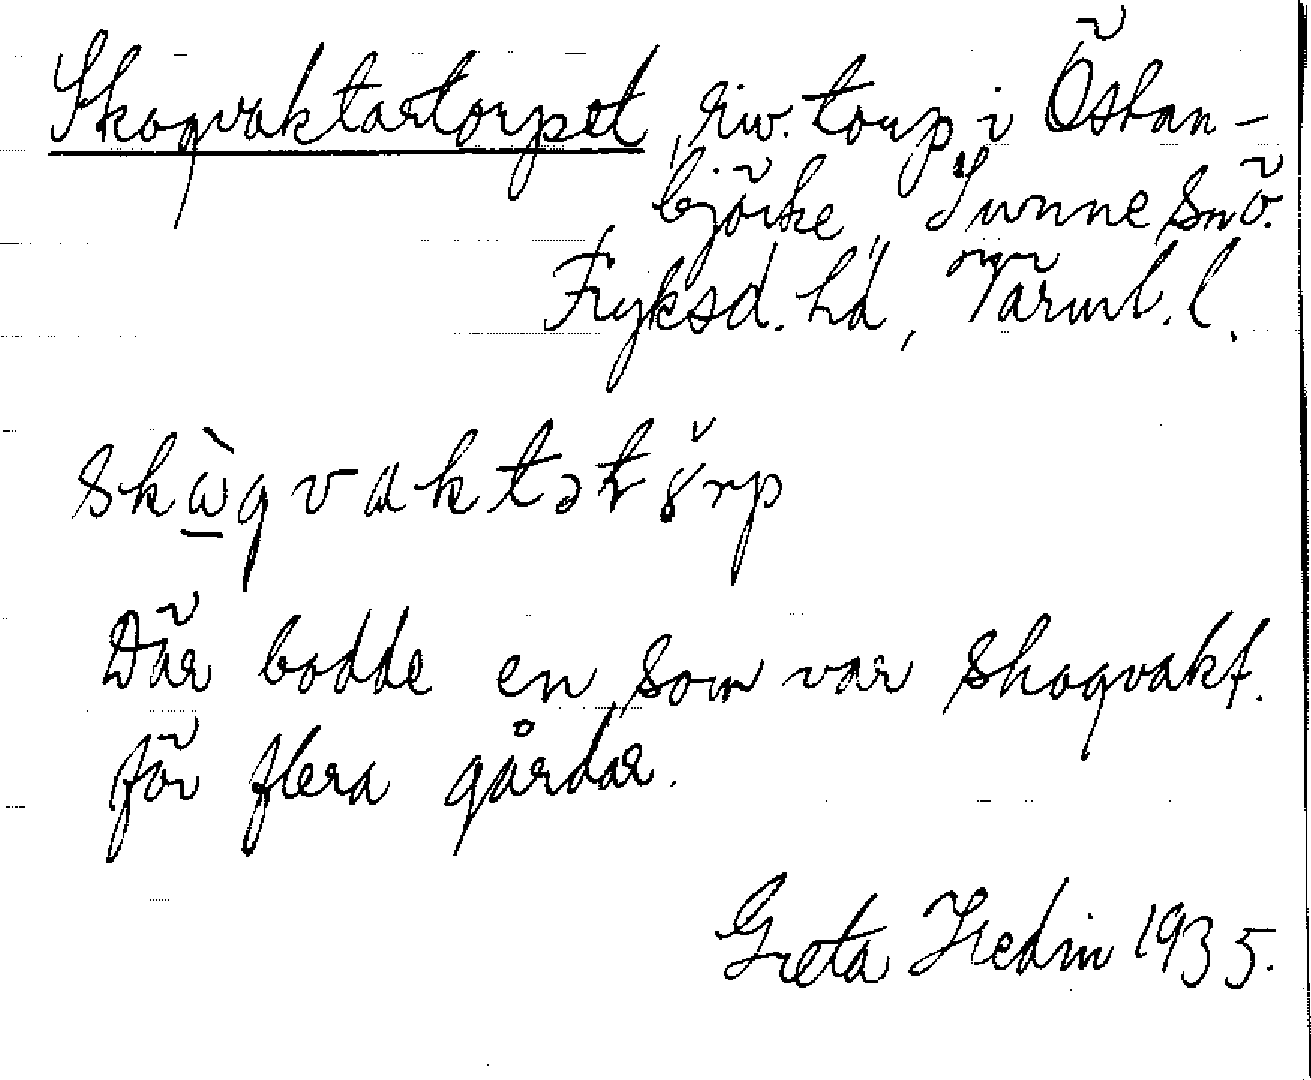 Skogvaktartorpet, riv. torp i Östan-
björke, Sunne snö.
Fryksd. hd, Värml. l.
skὼgvaktətŏ̤rp
Där bodde en som var skogvakt.
för flera gårdar.
Greta Hedin 1935.